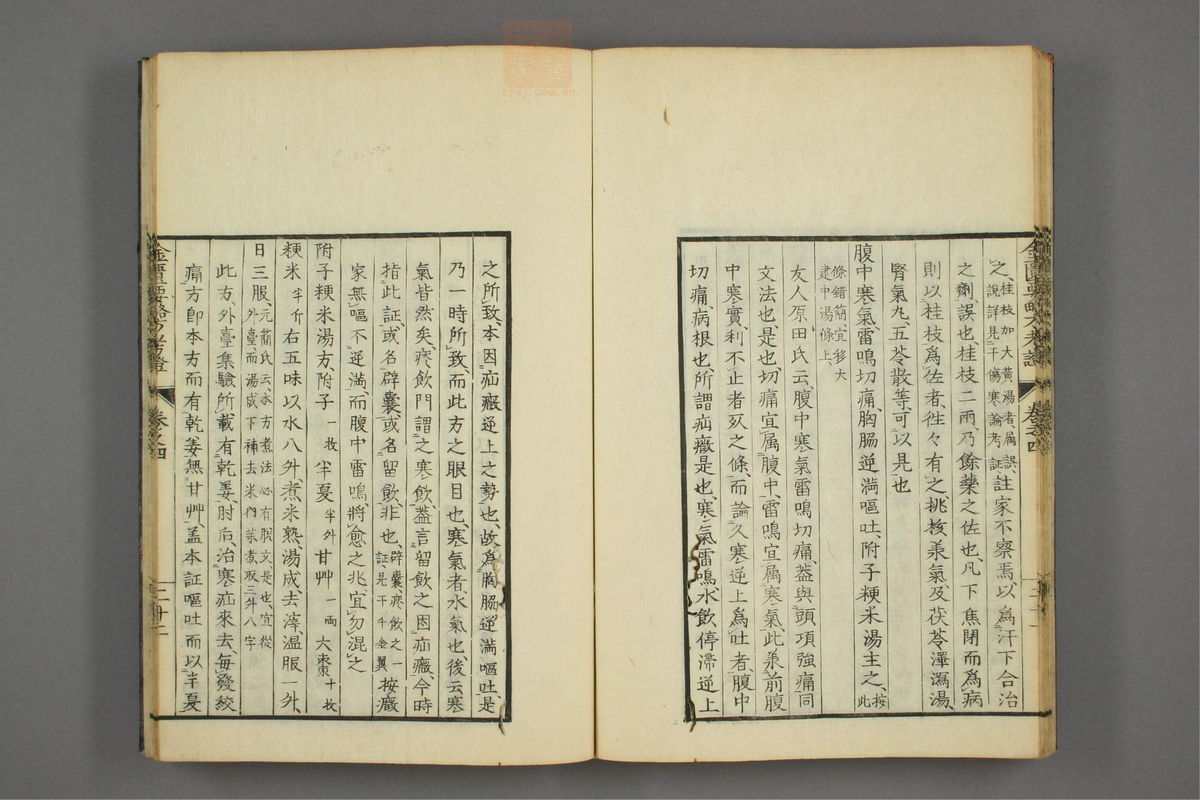 之、桂枝加大黃湯者、属誤、說詳見于傷寒論考証、註家不察焉、以為汗下合治
之劑、誤也、桂枝二兩、乃餘藥之佐也、凡下焦閉而為病
則以桂枝為佐者、徃々有之、桃核承氣及茯苓澤瀉湯、
腎氣丸五苓散等、可以見也
腹中寒氣、雷鳴切痛、胸脇逆満嘔吐、附子粳米湯主之、按此
條錯簡、宜移大建中湯條上、
友人原田氏云、腹中寒氣雷鳴切痛、葢與頭項強痛同
文法也、是也、切痛宜属腹中、雷鳴宜属寒氣、此承前腹
中寒實、利不止者死之條、而論久寒逆上為吐者、腹中
切痛、病根也、所謂疝癥是也、寒氣雷鳴、水飲停滯逆上
之所致、本因疝癥逆上之勢也、故為胸脇逆満嘔吐、是
乃一時所致、而此方之眼目也、寒氣者、水氣也、後云寒
氣皆然矣、痰飲門謂之寒飲、葢言留飲之因疝癥、今時
指此証、或名辟囊、或名留飲、非也、辟囊、痰飲之一証、見于千金翼、按癥
家無嘔不逆満、而腹中雷鳴、將愈之兆、宜勿混之
附子粳米湯方、附子一枚 半夏半升 甘艸一両 大棗十枚
粳米半升 右五味以水八升、煮米熟、湯成、去滓、温服一升、
日三服、元蕳氏云、本方煮法、必有脫文是也、宜從外臺、而湯成下補去米內藥煮取三升八字
此方、外臺集驗所載、有乾姜、肘后、治寒疝來去、毎發絞
痛方、即本方而有乾姜、無甘艸、盖本証嘔吐而以半夏
金匱要略方考證 卷之四
金匱要略方考證 卷之四 三十二